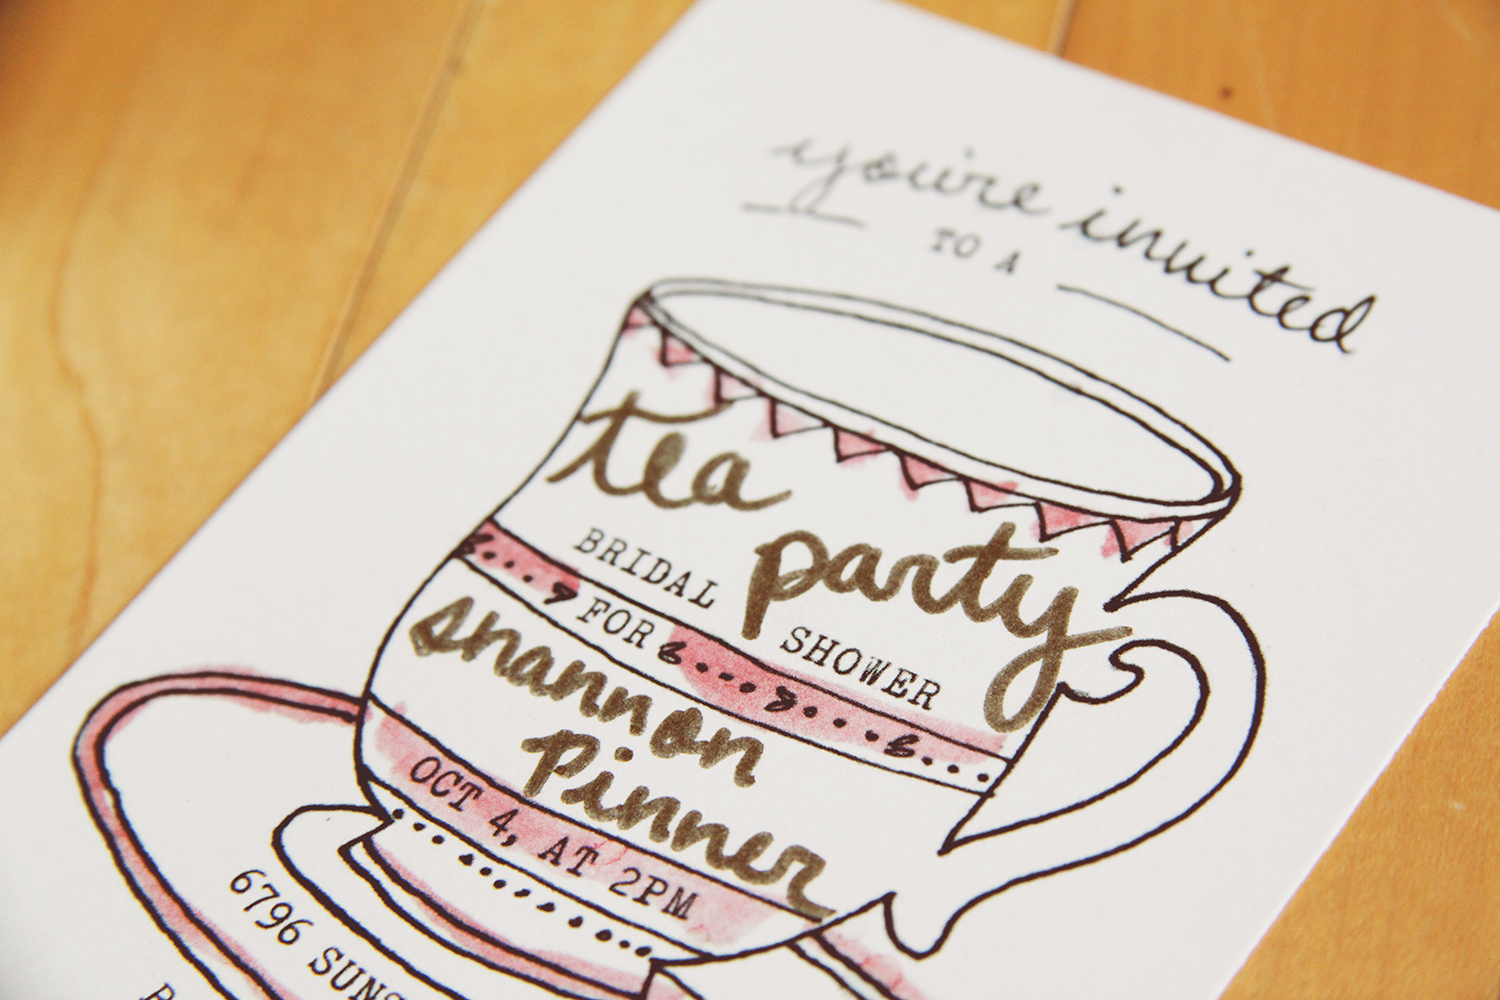 you're invited
TO A
tea
party
BRIDAL SHOWER
FOR
shannon
pinner
OCT 4, AT 2PM
6796